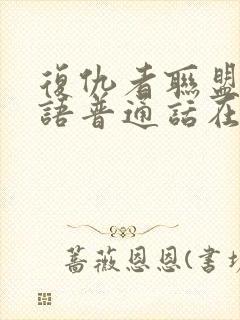 復仇者聯盟
語普通話在
蔷薇恩恩(書坊